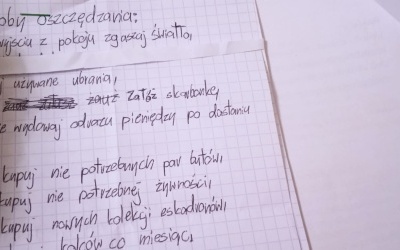 oby oszczędzania:
yjścia z pokoju zgaszaj światło,
używane ubrania,
zauż Załóż skarbonkę,
e wydawaj odrazu pieniędzy po dostaniu
kupuj nie potrzebnych par butów,
kupuj nie potrzebnej żywności,
kupuj nowych kolekcji eskadronów,
co miesiąc,